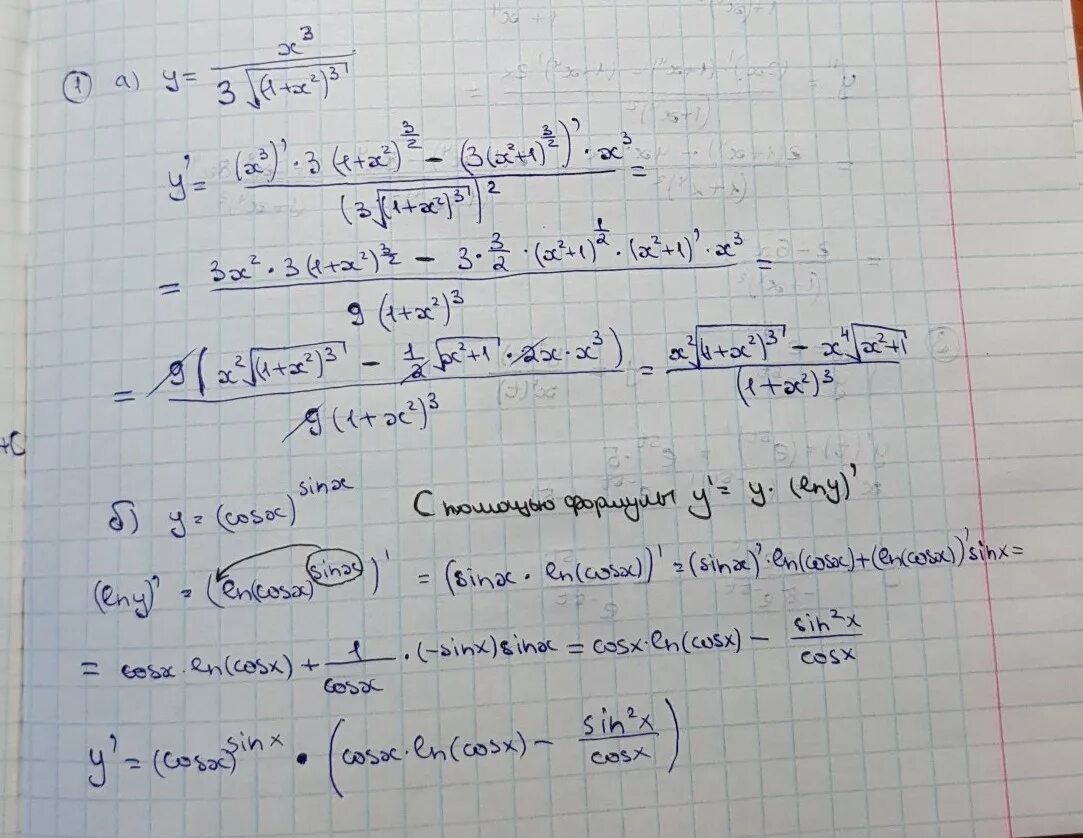 ① а) y = x³ / 3√(1+x²)³
y' = ((x³)' · 3(1+x²)^(3/2) − (3(x²+1)^(3/2))' · x³) / (3√(1+x²)³)² =
= (3x² · 3(1+x²)^(3/2) − 3 · 3/2 · (x²+1)^(1/2) · (x²+1)' · x³) / 9(1+x²)³ =
= 9(x²√(1+x²)³ − 1/2 √(x²+1) · 2x · x³) / 9(1+x²)³ = (x²√(1+x²)³ − x⁴√(x²+1)) / (1+x²)³
+C
б) y = (cosx)^(sinx) С помощью формулы y' = y · (lny)'
(lny)' = (ln(cosx)^(sinx))' = (sinx · ln(cosx))' = (sinx)' · ln(cosx) + (ln(cosx))' sinx =
= cosx · ln(cosx) + 1/cosx · (−sinx) sinx = cosx · ln(cosx) − sin²x/cosx
y' = (cosx)^(sinx) · (cosx · ln(cosx) − sin²x/cosx)